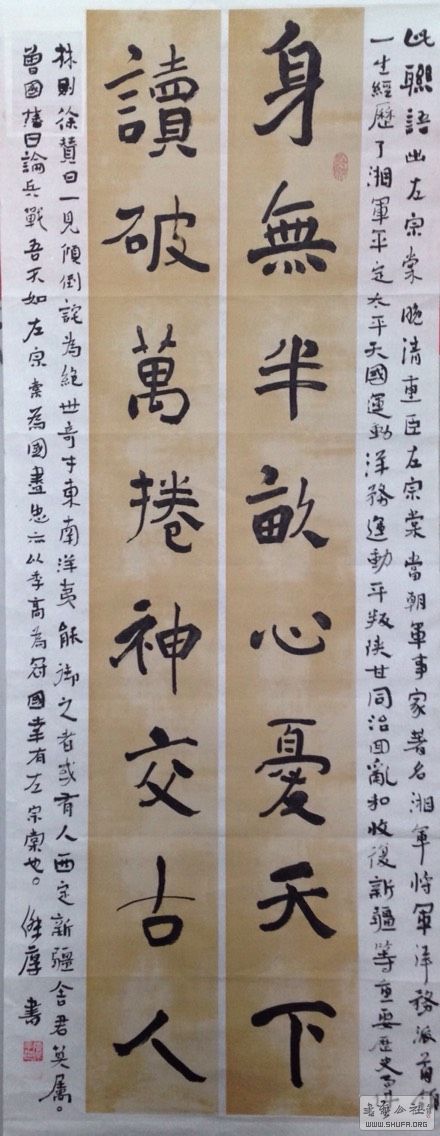 此聯語出左宗棠晚清重臣左宗棠當朝軍事家著名湘軍將軍洋務派首領
一生經歷了湘軍平定太平天國運動洋務運動平叛陝甘同治回亂和收復新疆等重要歷史事
身無半畝心憂天下
讀破萬捲神交古人
林則徐贊曰一見傾倒詫為絕世奇才東南洋夷能御之者或有人西定新疆舍君莫屬。
曾國藩曰論兵戰吾不如左宗棠為國盡忠亦以季高為冠國幸有左宗棠也。
書
书艺公社
WWW.SHUFA.ORG